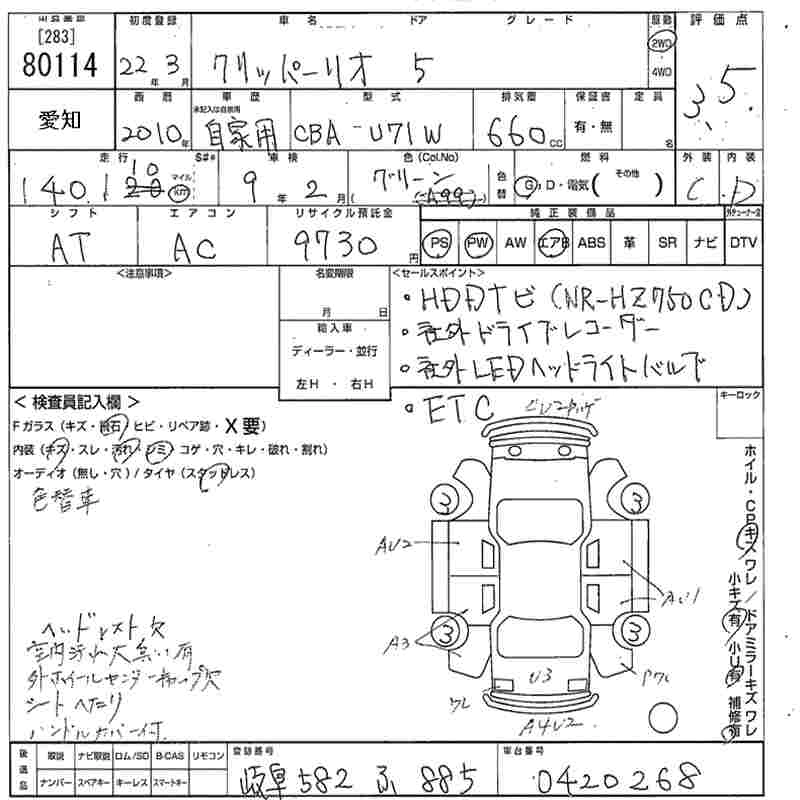 初度登録 車名 ドア グレード 駆動 評価点
[283]
80114
22年 3月 クリッパーリオ 5 2WD 4WD 3.5
愛知
西暦 車歴 型式 排気量 保証書 定員
未記入は自家用
2010年 自家用 CBA-U71W 660cc 有・無 名
走行 S#* 車検 色(Col.No) 燃料 外装 内装
140.1 20 10 マイル km 9年 2月 グリーン 色替 G・D・電気( その他 ) C D
シフト エアコン リサイクル預託金 純正装備品
AT AC 9730円 PS PW AW エアB ABS 革 SR ナビ DTV
<注意事項> 名変期限 <セールスポイント>
月 日
輸入車
ディーラー・並行
左H・右H
・HDDナビ(NR-HZ750CD)
・社外ドライブレコーダー
・社外LEDヘッドライトバルブ
・ETC
キーロック
<検査員記入欄>
Fガラス(キズ・飛石・ヒビ・リペア跡・X要)
内装(キズ・スレ・汚れ・シミ・コゲ・穴・キレ・破れ・割れ)
オーディオ(無し・穴)/タイヤ(スタッドレス)
色替車
3 3
AU2
AU1
3 3
A3
U3
ワレ
Pワレ
A4U2
ヘッドレスト欠
室内汚れ大臭い有
外ホイールセンターキャップ欠
シートへたり
ハンドルカバー付
ホイール・CPキズワレ/ドアミラーキズワレ
小キズ有 小U有 補修有
後送品 取説 ナビ取説 ロム/SD B-CAS リモコン 登録番号 車台番号
ナンバー スペアキー キーレス スマートキー
岐阜 582 ふ 885 0420268